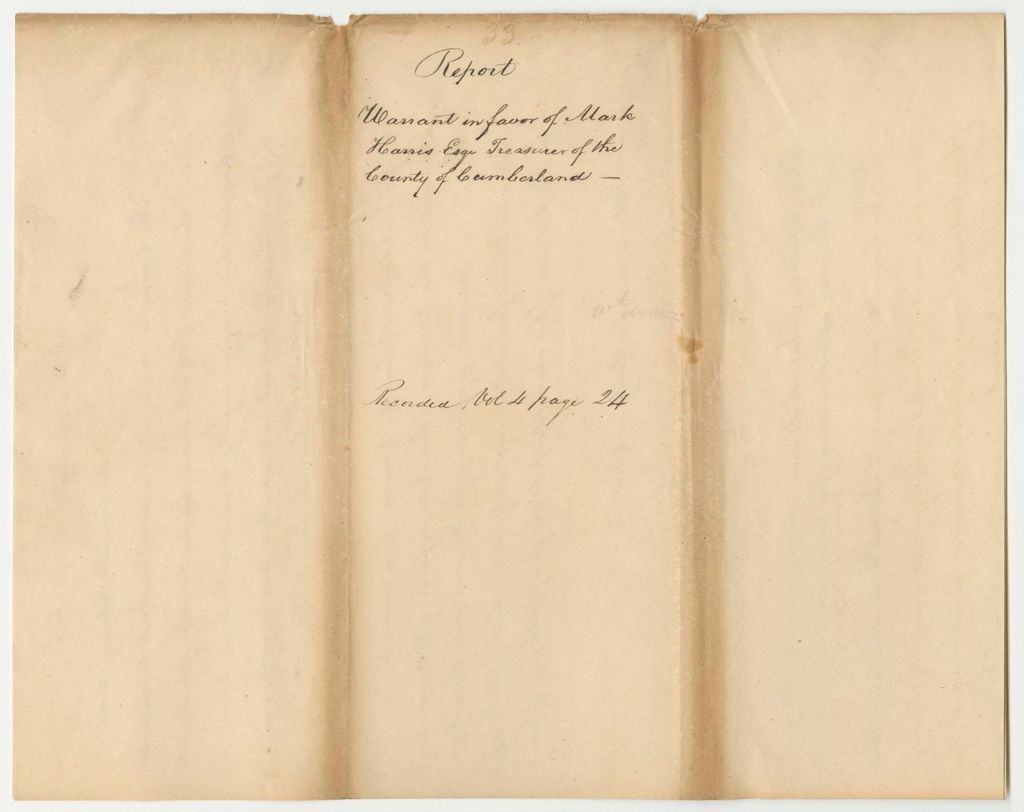 33.
Report
Warrant in favor of Mark
Harris Esqr Treasurer of the
County of Cumberland —
Recorded Vol 4 page 24